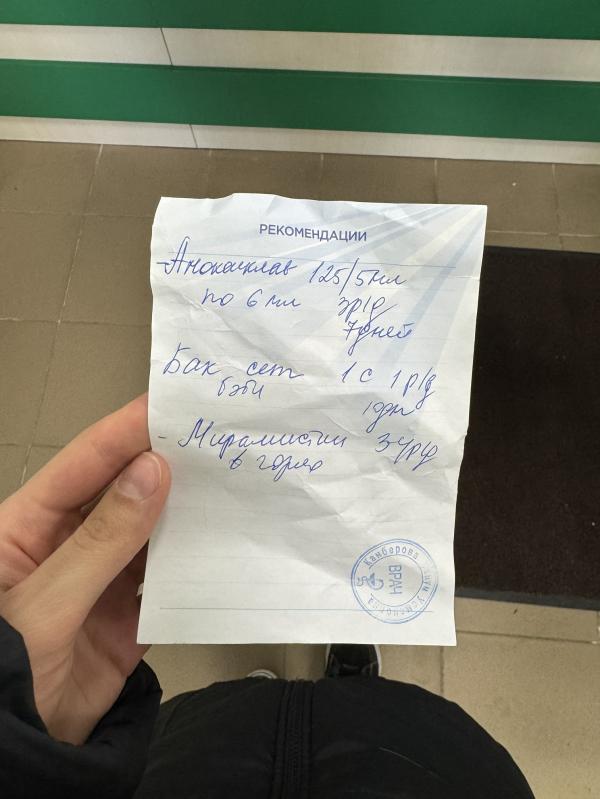 РЕКОМЕНДАЦИИ
- Амоксиклав 125/5мл
по 6 мл 3р/д
7дней
Бак сет 1с 1р/д
бэби
- Мирамистин 3-4р/д
в горло
Камберова
ВРАЧ